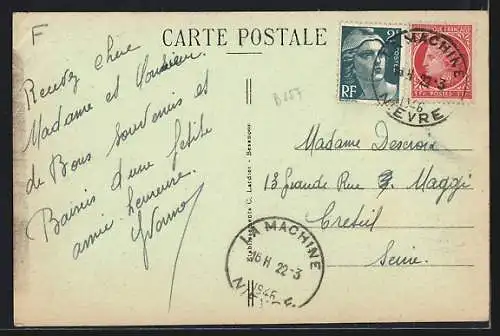 F
CARTE POSTALE
Recevez chère
Madame et Monsieur
de Bons souvenirs et
Baisers d'une petite
amie heureuse.
Yvonne
B257
Etablissements C. Lardier - Besançon
2F
POSTES
RF
LA MACHINE
16 H 22-3
1946
NIEVRE
Madame Descroix
13 Grande Rue Maggi
Creteil
Seine.
LA MACHINE
16 H 22-3
1946